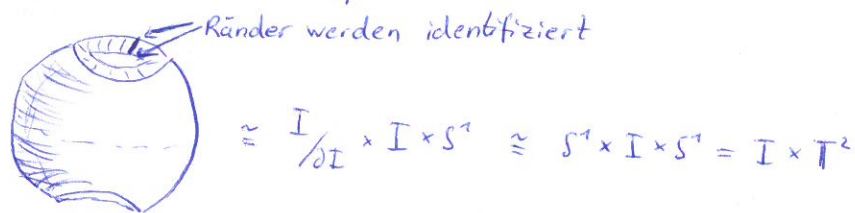 Ränder werden identifiziert
≅ I/∂I × I × S¹ ≅ S¹ × I × S¹ = I × T²